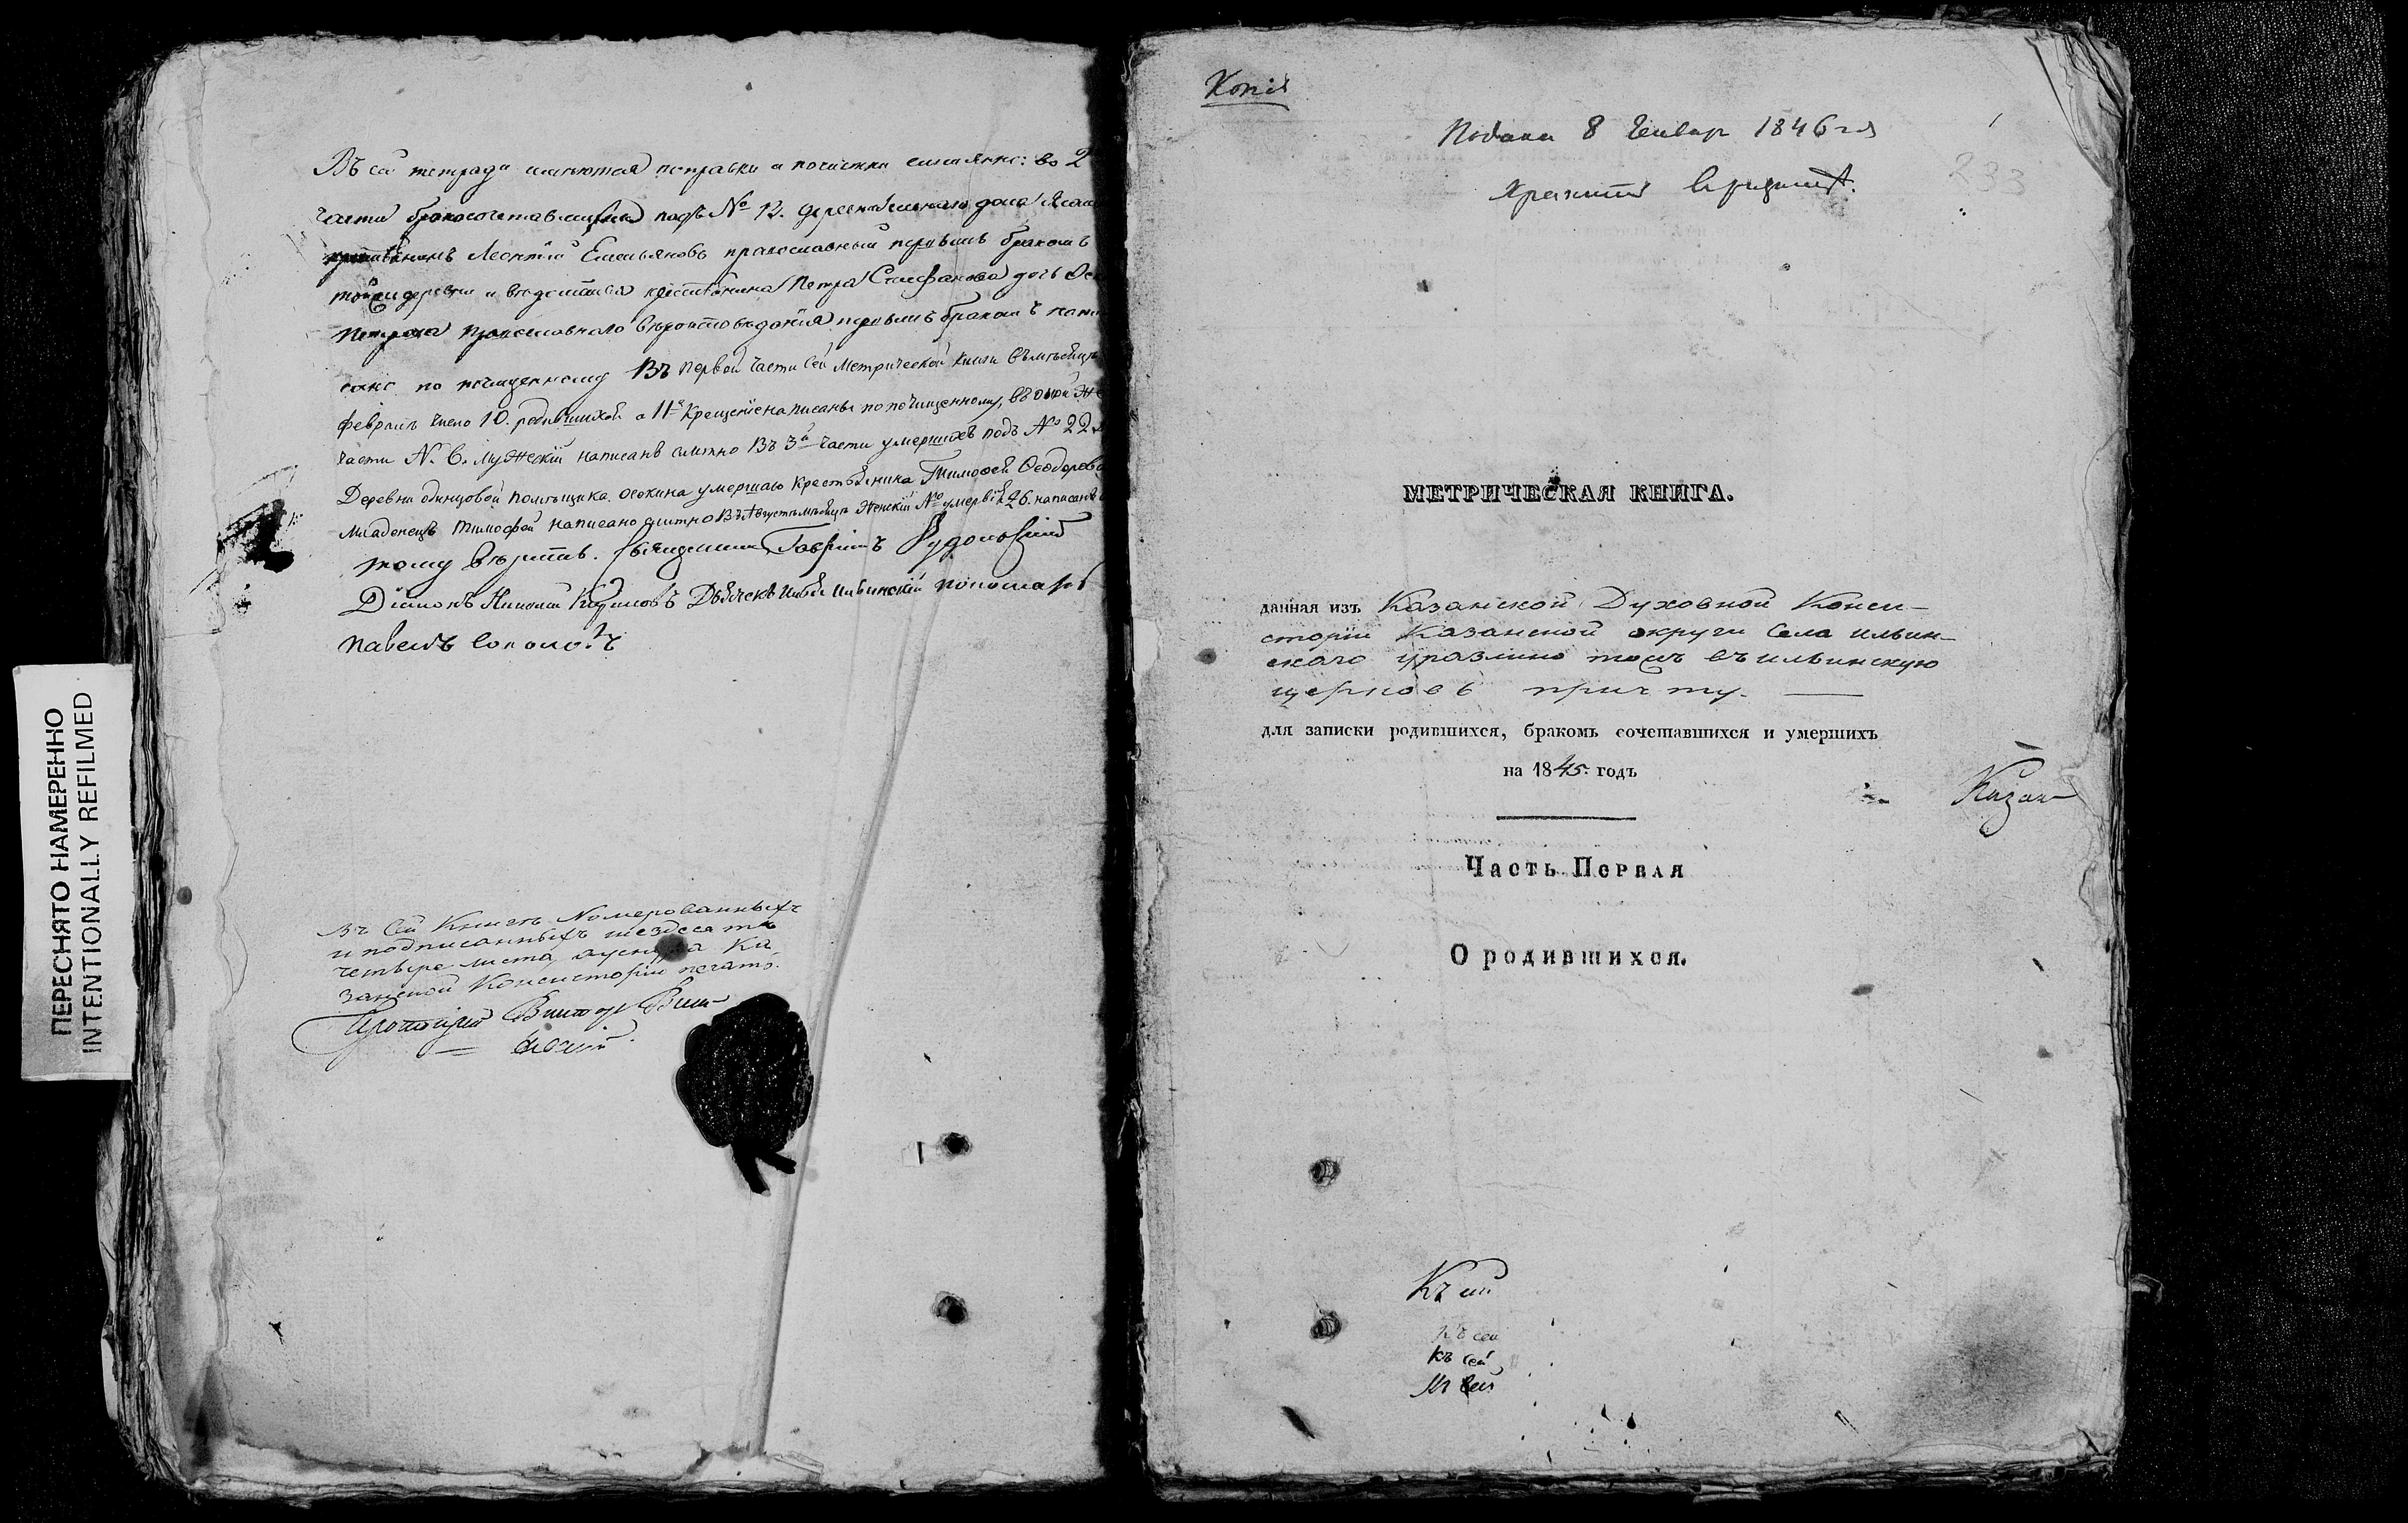 Въ сей тетради имеются поправки и почистки именно: во 2
части бракосочетавшихся подъ № 12. деревни дома
Леонтій Емельяновъ православный первымъ бракомъ
тойже деревни и крестьянина Петра Стефанова дочь
Петрова православнаго вероисповеданія первымъ бракомъ
сано по почищенному Въ первой части сей Метрической книги въ месяце
февраль число 10. родившихся а 11е крещеніе написаны по почищенному, въ оной же
части N. 6. мужескій написанъ Въ 3й части умершихъ подъ № 22
Деревни одинцовой помещика осокина умершаго крестьянина Тимофей Феодоровъ
младенецъ тимофей написано Въ Августе месяце женскій № умершій 26. написанъ
тому верити. Священникъ Гавріилъ Рудольскій
Діаконъ Николай Дьячекъ Ильинскій пономарь
павелъ соколовъ
въ сей книге Номерованныхъ
и подписанныхъ шездесятъ
четыре листа, Ка
занской Консисторіи печать.
Протоіерей Викторъ Виш
невскій
ПЕРЕСНЯТО НАМЕРЕННО
INTENTIONALLY REFILMED
Копія
Подана 8 Генвар 1846 го
1
233
МЕТРИЧЕСКАЯ КНИГА.
данная изъ Казанской Духовной Конси-
сторіи Казанской округи Села ильин-
скаго уразлино тожъ въ ильинскую
церковь причту.
для записки родившихся, бракомъ сочетавшихся и умершихъ
на 1845. годъ
Казан
Часть Первая
О родившихся.
Къ сей
къ сей
къ сей